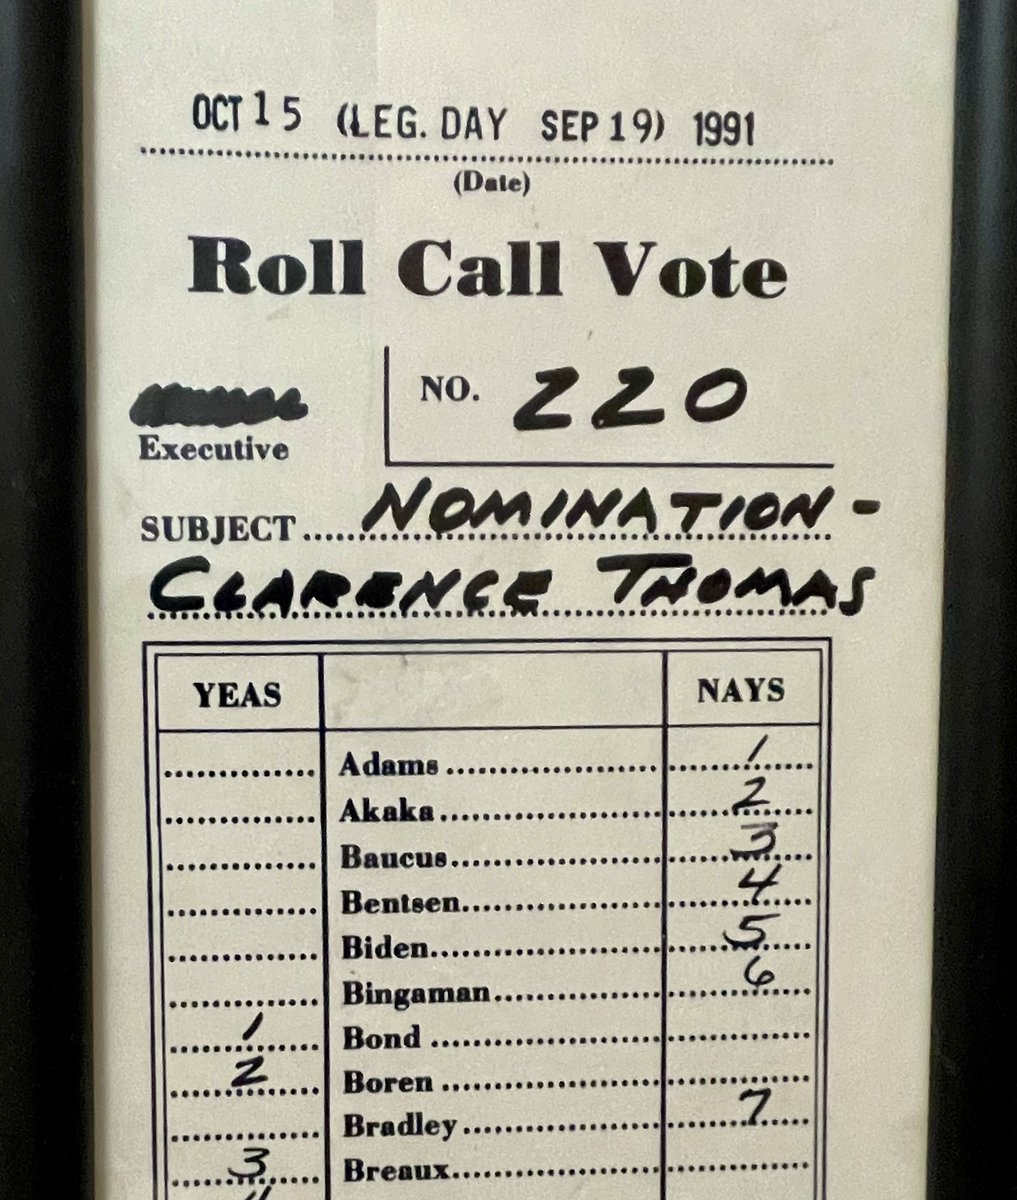 OCT 15 (LEG. DAY SEP 19) 1991
(Date)
Roll Call Vote
NO. 220
Executive
SUBJECT NOMINATION -
CLARENCE THOMAS
YEAS NAYS
Adams 1
Akaka 2
Baucus 3
Bentsen 4
Biden 5
Bingaman 6
1 Bond
2 Boren
Bradley 7
3 Breaux